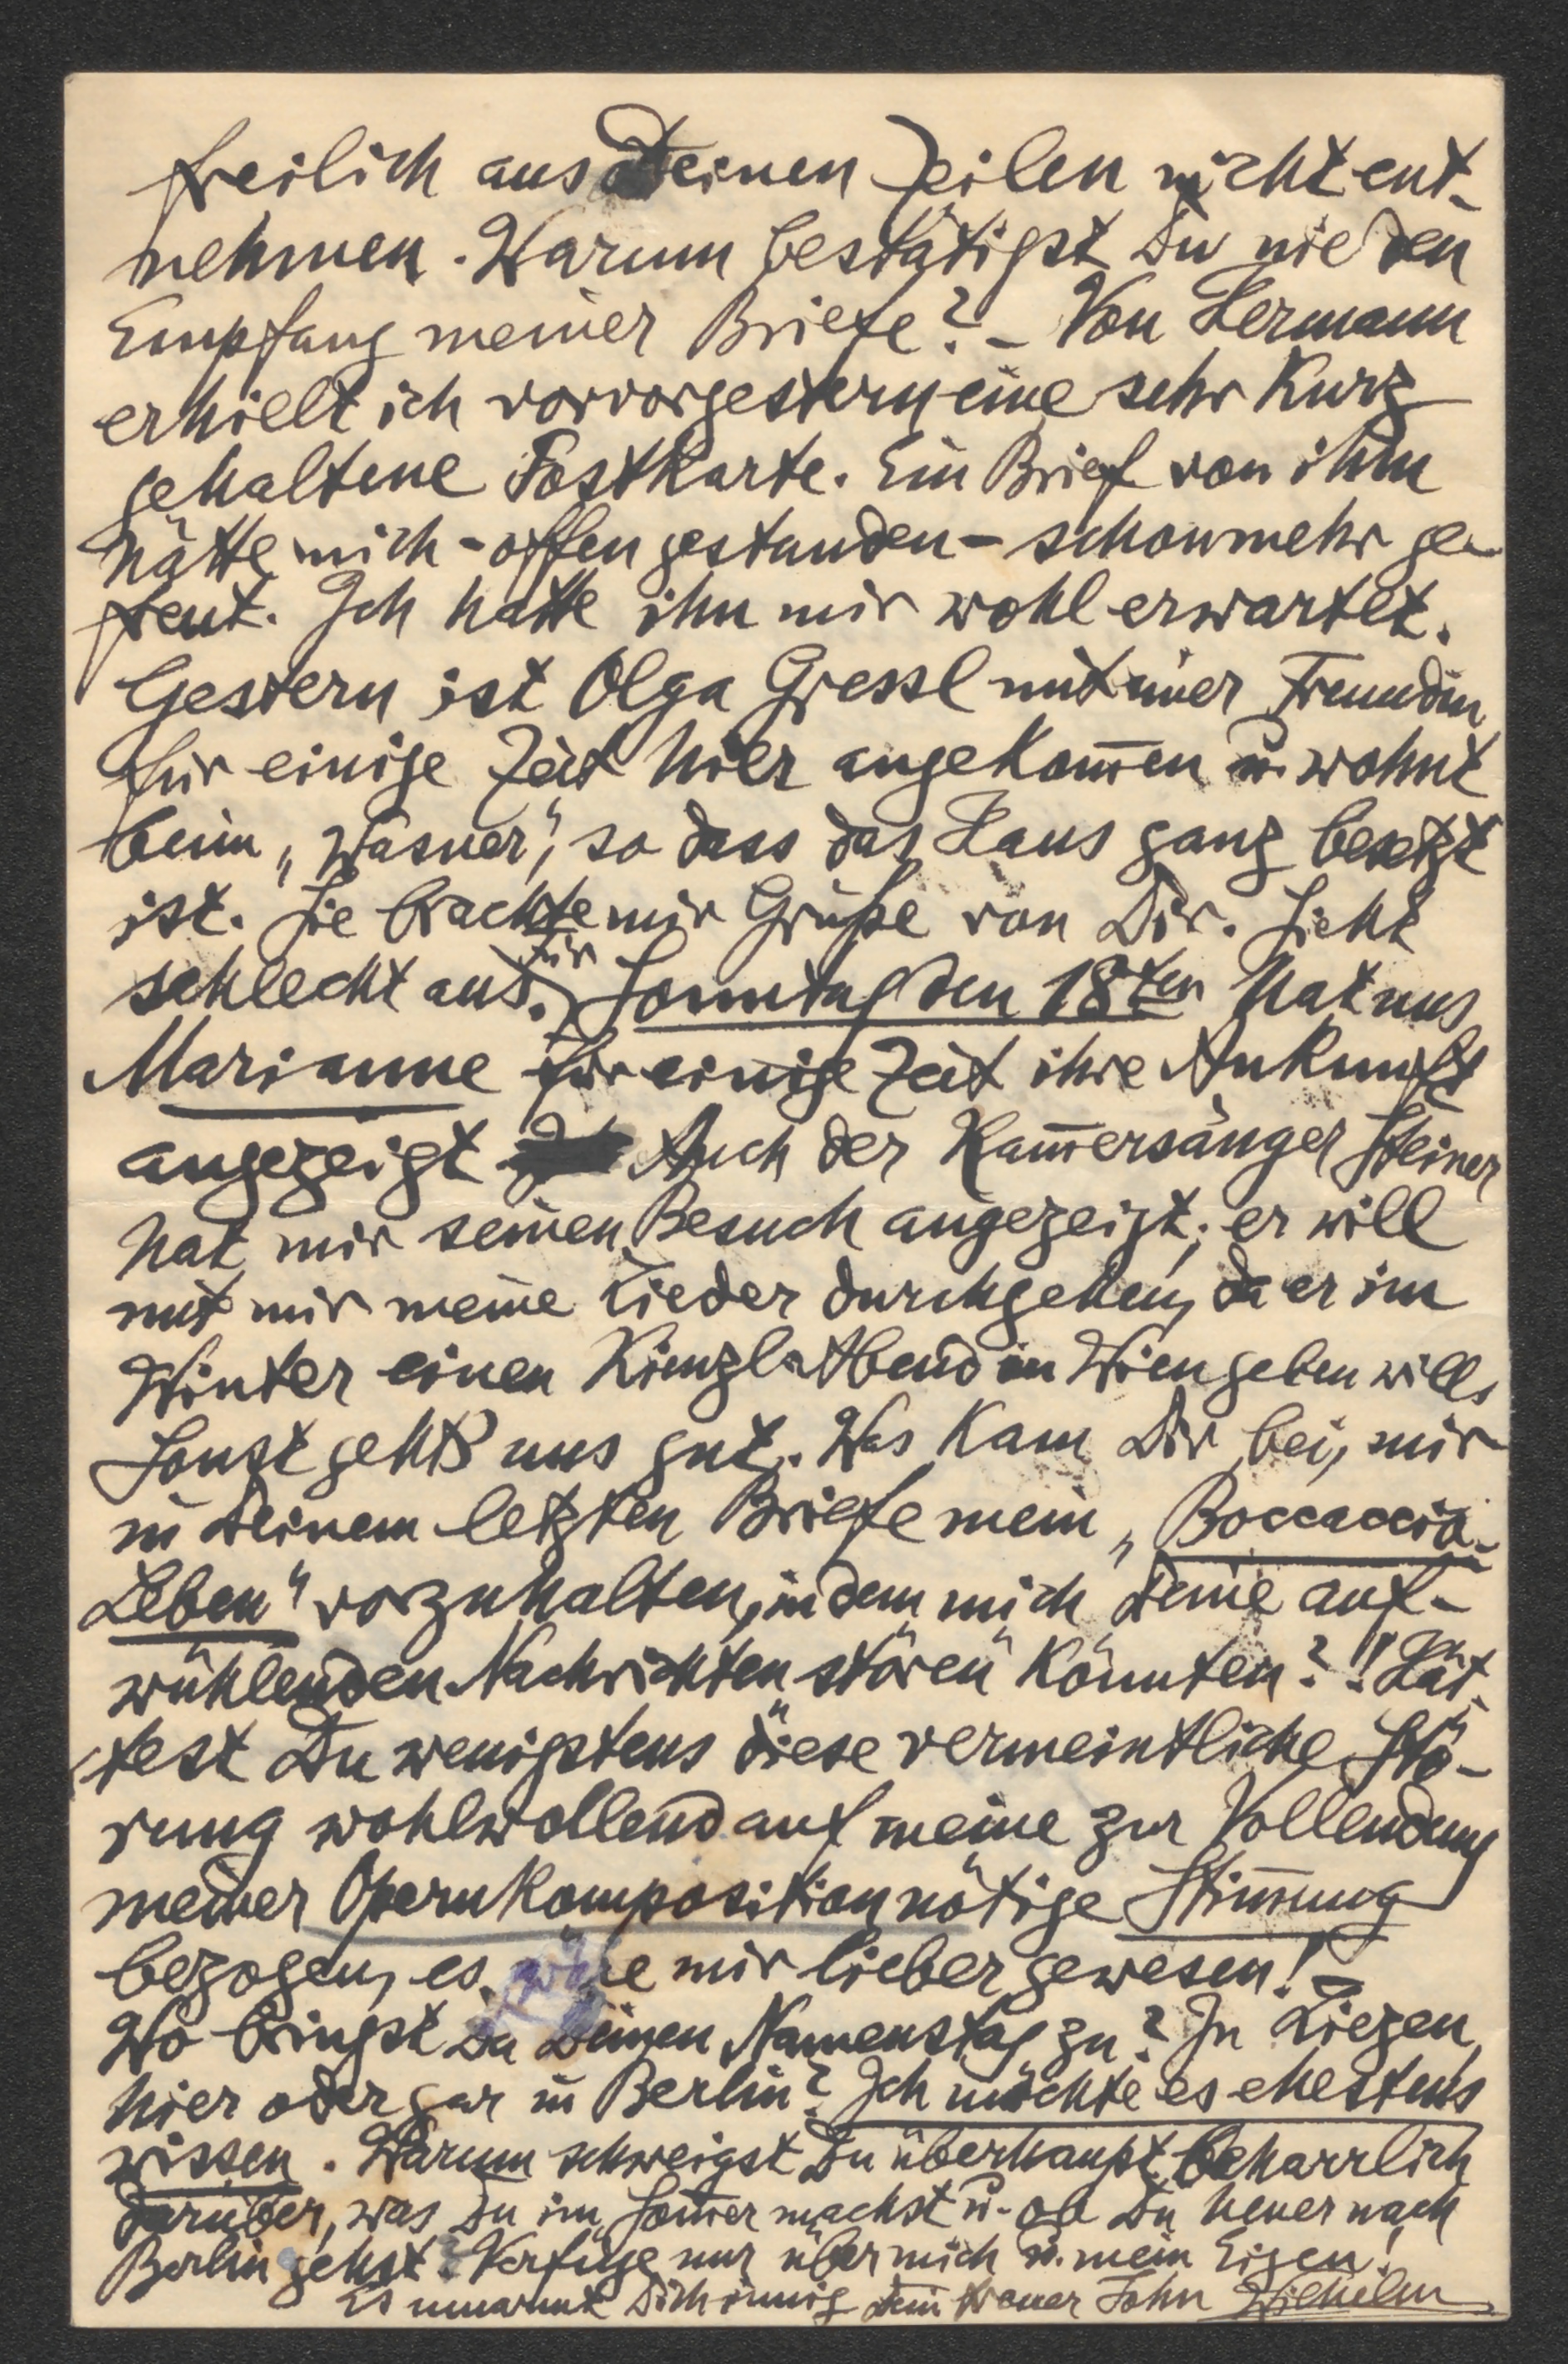 freilich aus Deinen Zeilen nicht ent-
nehmen. Warum bestätigst Du nie den
Empfang meiner Briefe? – Von Hermann
erhielt ich vorvorgestern eine sehr kurz
gehaltene Postkarte. Ein Brief von ihm
hätte mich – offen gestanden – schon mehr ge-
freut. Ich hatte ihn mir wohl erwartet.
Gestern ist Olga Gressl mit einer Freundin
für einige Zeit hier angekom̅en u. wohnt
beim „Wasner“, so dass das Haus ganz besetzt
ist. Sie brachte mir Grüße von Dir. Sieht
schlecht aus. Für Sonntag den 18ten hat uns
Marianne für einige Zeit ihre Ankunft
angezeigt Auch der Kam̅ersänger Steiner
hat mir seinen Besuch angezeigt; er will
mit mir meine Lieder durchgehen, da er im
Winter einen Kienzl-Abend in Wien geben will.
Sonst geht's uns gut. Was kam Dir bei, mir
in Deinem letzten Briefe mein „Boccaccio-
Leben“ vorzuhalten, in dem mich Deine auf-
wühlenden Nachrichten „stören“ könnten?!! Hät-
test Du wenigstens diese vermeintliche Stö-
rung wohlwollend auf meine zur Vollendung
meiner Opernkomposition nötige Stim̅ung
bezogen, es wäre mir lieber gewesen! –
Wo bringst Du Deinen Namenstag zu? In Liezen,
hier oder gar in Berlin? Ich möchte es ehestens
wissen. Warum schweigst Du überhaupt beharrlich
darüber, was Du im Som̅er machst u. ob Du heuer nach
Berlin gehst? Verfüge nur über mich u. mein Eigen!
Es umarmt Dich innig Dein treuer Sohn Wilhelm